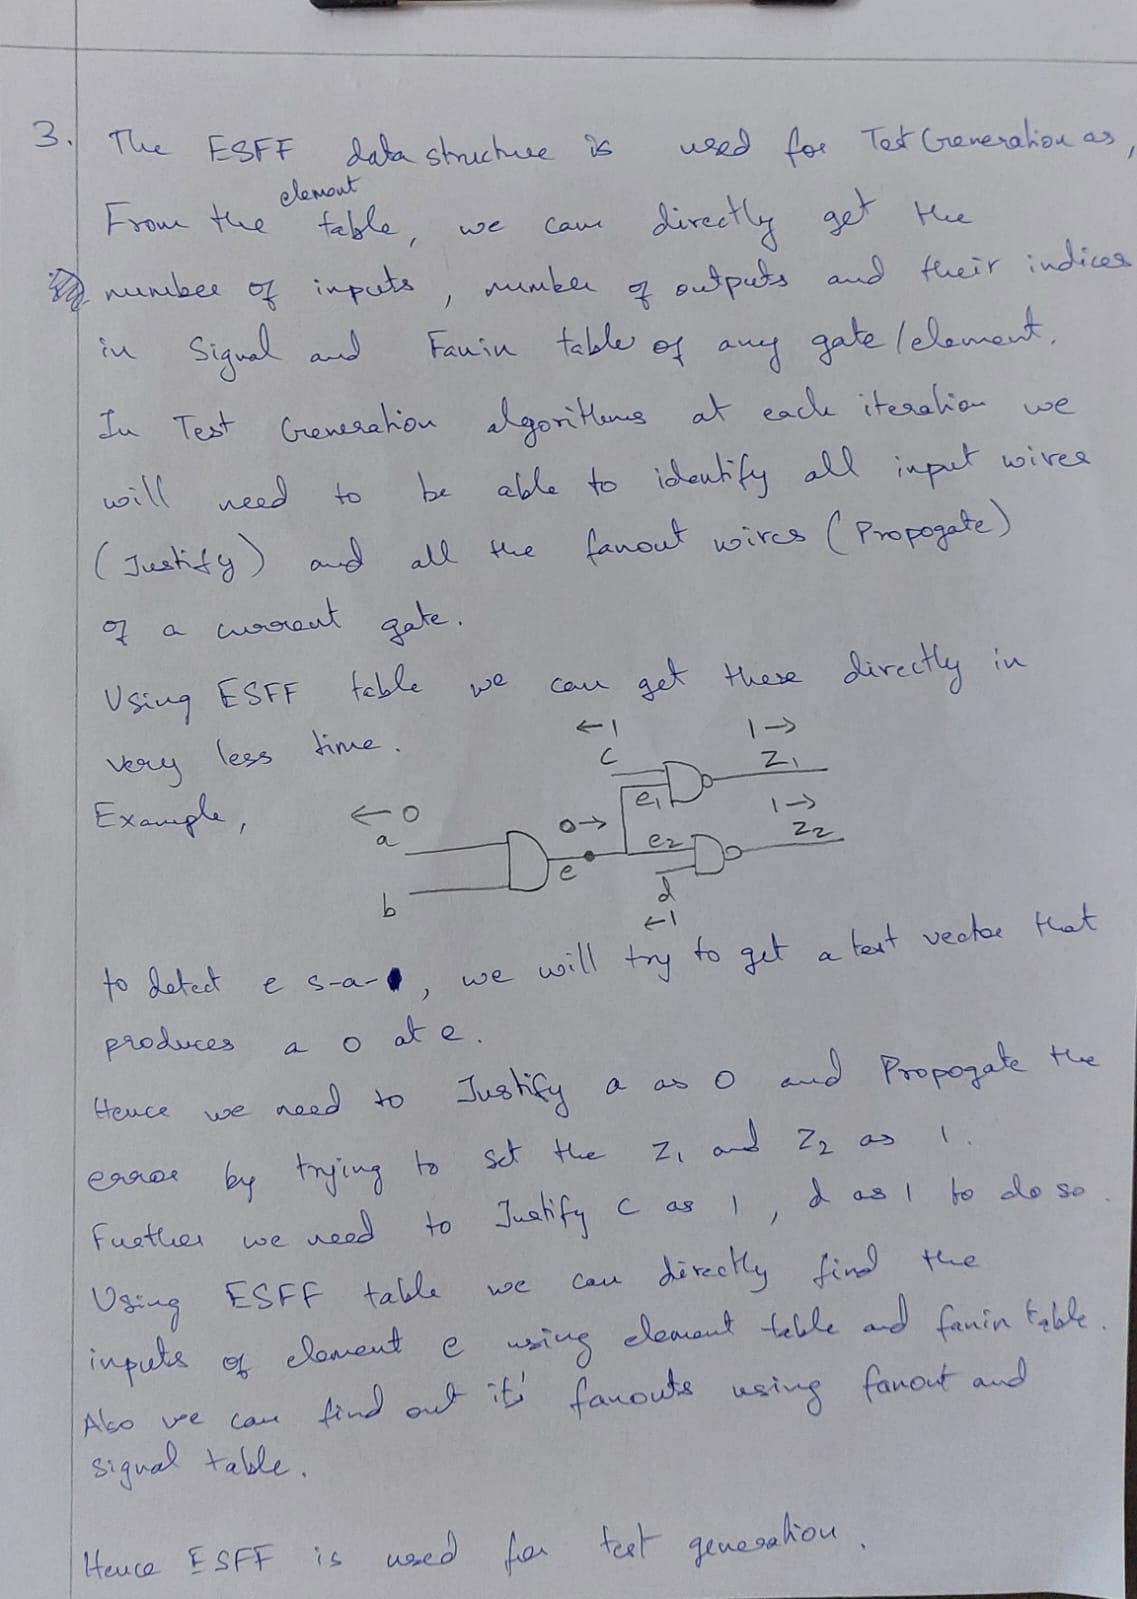 3. The ESFF data structure is used for Test Generation as,
From the element table, we can directly get the
number of inputs, number of outputs and their indices
in Signal and Fanin table of any gate/element.
In Test Generation algorithms at each iteration we
will need to be able to identify all input wires
(Justify) and all the fanout wires (Propogate)
of a current gate.
Using ESFF table we can get these directly in
very less time.
←1 1→
c z₁
Example, ←0 e₁ 1→
a 0→ e₂ z₂
e
b d
←1
to detect e s-a-, we will try to get a test vector that
produces a 0 at e.
Hence we need to Justify a as 0 and Propogate the
error by trying to set the z₁ and z₂ as 1.
Further we need to Justify c as 1, d as 1 to do so.
Using ESFF table we can directly find the
inputs of element e using element table and fanin table.
Also we can find out its' fanouts using fanout and
signal table.
Hence ESFF is used for test generation.